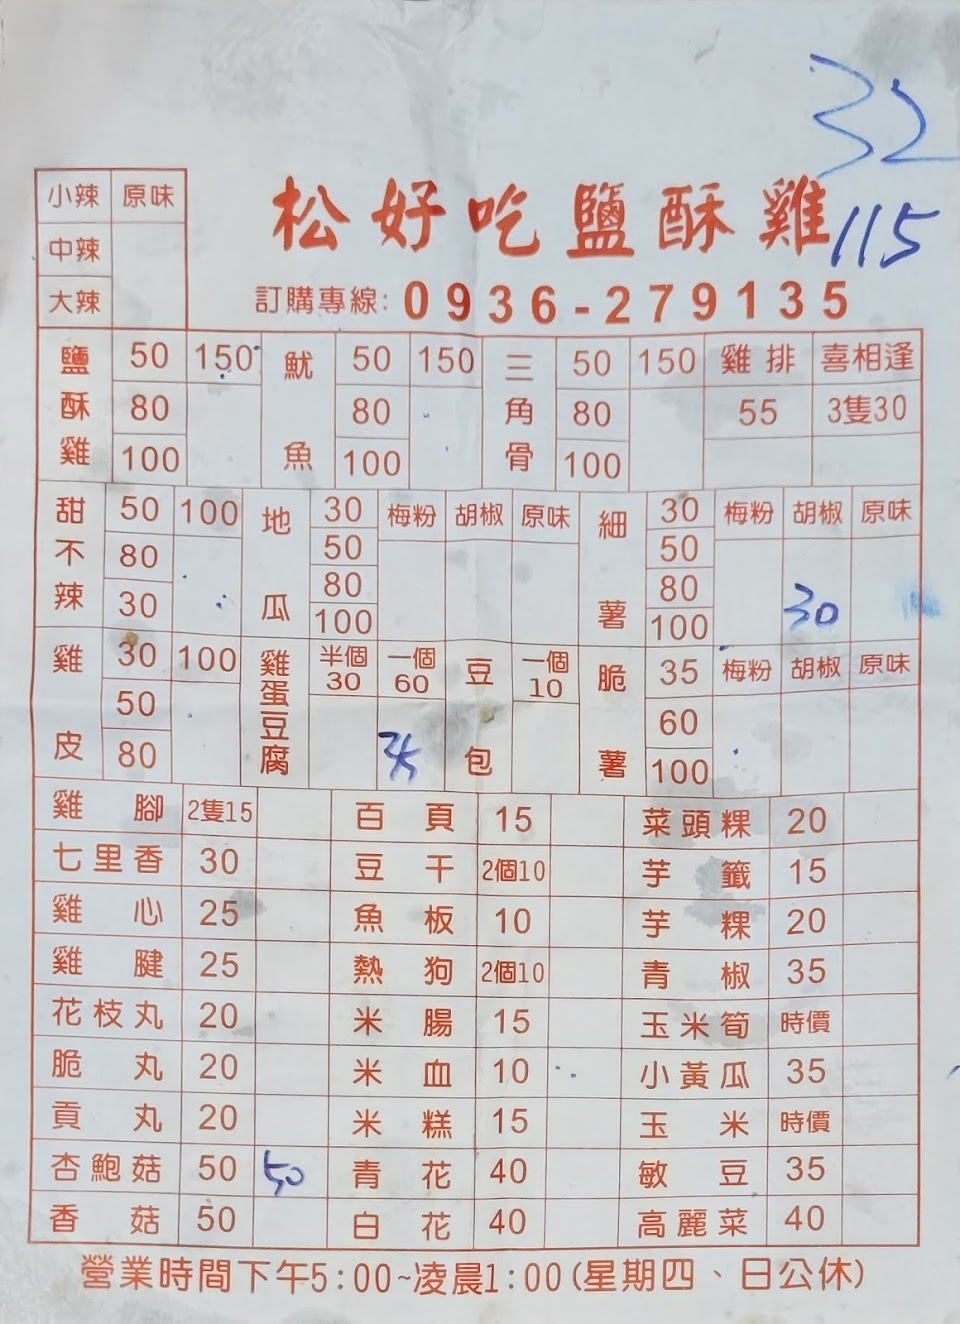 32
小辣 原味
中辣
大辣
松好吃鹽酥雞 115
訂購專線: 0936-279135
鹽酥雞 50 80 100 150 魷魚 50 80 100 150 三角骨 50 80 100 150 雞排 55 喜相逢 3隻30
甜不辣 50 80 30 100 地瓜 30 50 80 100 梅粉 胡椒 原味 細薯 30 50 80 100 梅粉 胡椒 30 原味
雞皮 30 50 80 100 雞蛋豆腐 半個30 一個60 豆包 一個10 脆薯 35 60 100 梅粉 胡椒 原味
雞腳 2隻15 百頁 15 菜頭粿 20
七里香 30 豆干 2個10 芋籤 15
雞心 25 魚板 10 芋粿 20
雞腱 25 熱狗 2個10 青椒 35
花枝丸 20 米腸 15 玉米筍 時價
脆丸 20 米血 10 小黃瓜 35
貢丸 20 米糕 15 玉米 時價
杏鮑菇 50 50 青花 40 敏豆 35
香菇 50 白花 40 高麗菜 40
營業時間下午5:00~凌晨1:00(星期四、日公休)